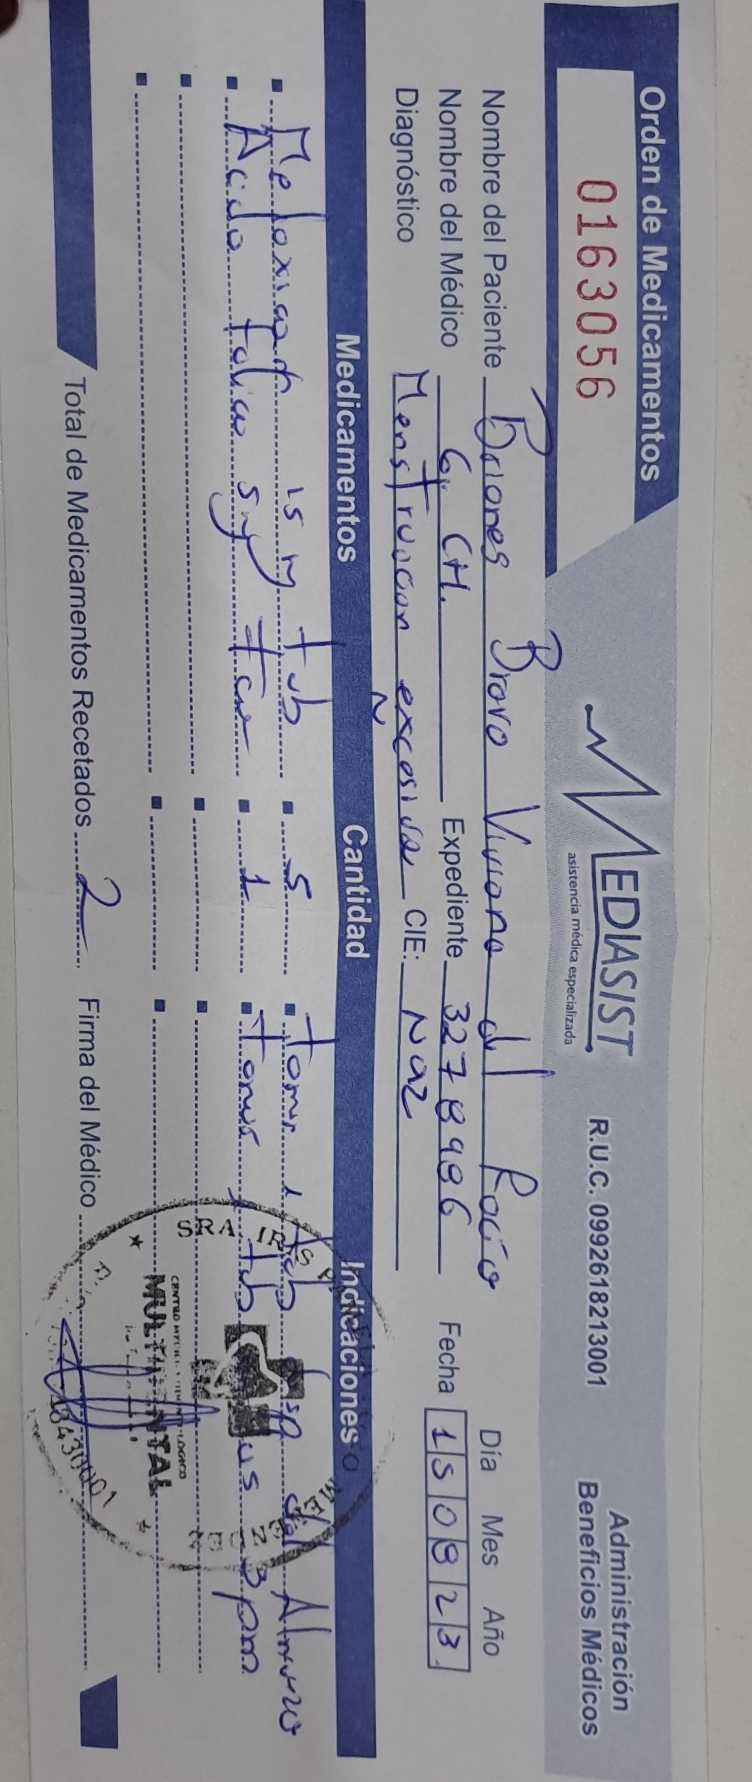 Orden de Medicamentos
0163056
MEDIASIST
asistencia médica especializada
R.U.C. 0992618213001
Administración
Beneficios Médicos
Nombre del Paciente Briones Bravo Viviana del Rocío
Nombre del Médico G. CH. Expediente 3278986 Fecha Día Mes Año 15 08 23
Diagnóstico Menstruacion excesiva CIE: N92
Medicamentos Cantidad Indicaciones
Meloxicam 15 mg tab 5 Tomar 1 tab dsp del Almuerzo
Acido folico 5mg 1 Tomar 1 tab 3 pm
Total de Medicamentos Recetados 2 Firma del Médico
CENTRO MEDICO